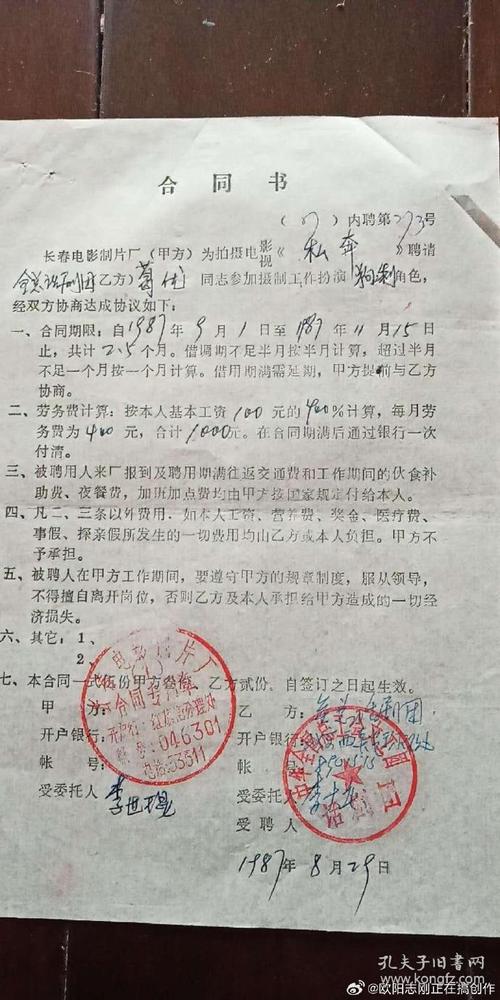 合同书
(87)内聘第273号
长春电影制片厂(甲方)为拍摄电影视《私奔》聘请
全总话剧团(乙方)葛优同志参加摄制工作扮演 角色,
经双方协商达成协议如下:
一、合同期限:自1987年9月1日至1987年11月15日
止,共计2.5个月。借调期不足半月按半月计算,超过半月
不足一个月按一个月计算。借用期满需延期,甲方提前与乙方
协商。
二、劳务费计算:按本人基本工资100元的400%计算,每月劳
务费为400元,合计1000元。在合同期满后通过银行一次
付清。
三、被聘用人来厂报到及聘用期满往返交通费和工作期间的伙食补
助费、夜餐费,加班加点费均由甲方按国家规定付给本人。
四、凡二、三条以外费用,如本人工资、营养费、奖金、医疗费、
事假、探亲假所发生的一切费用均由乙方或本人负担。甲方不
予承担。
五、被聘人在甲方工作期间,要遵守甲方的规章制度,服从领导,
不得擅自离开岗位,否则乙方及本人承担给甲方造成的一切经
济损失。
六、其它:1、
2、
七、本合同一式伍份甲方叁份,乙方贰份,自签订之日起生效。
甲方:
乙方:全总话剧团
开户银行:
开户银行:
帐号:
帐号:
受委托人
受委托人
受聘人
1987年8月29日
电影制片厂
合同专用章
046301
电话:53311
话剧团
孔夫子旧书网
kongfz.com
@欧阳志刚正在搞创作